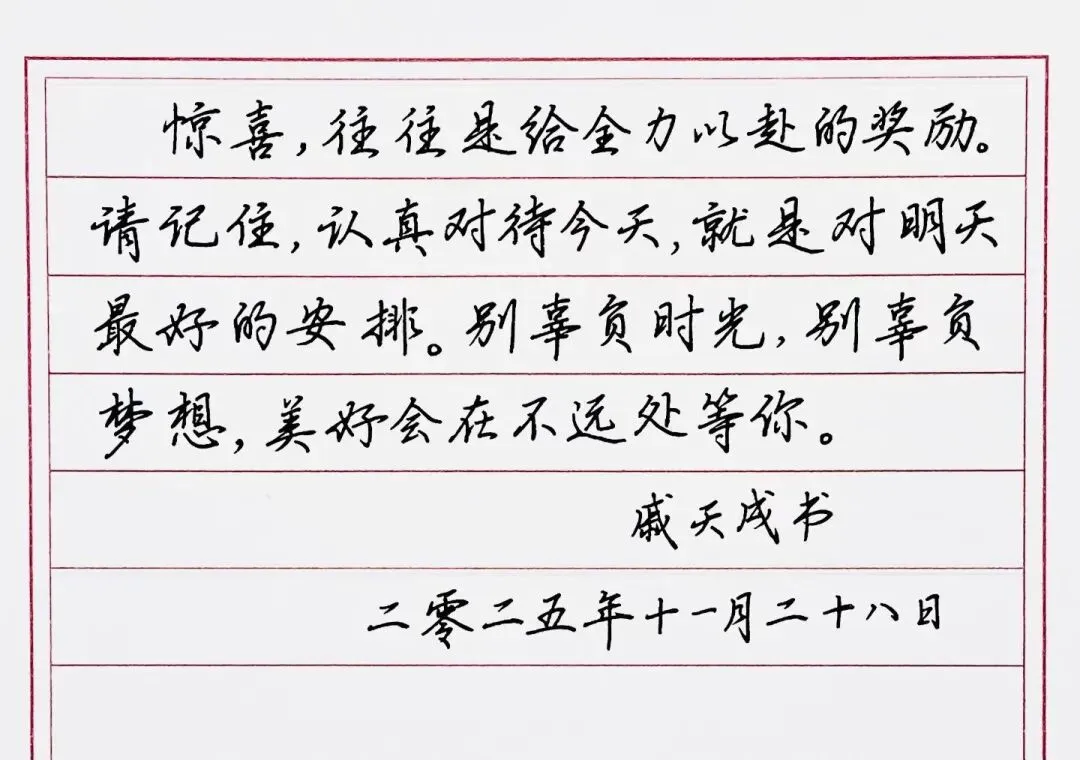 惊喜，往往是给全力以赴的奖励。
请记住，认真对待今天，就是对明天
最好的安排。别辜负时光，别辜负
梦想，美好会在不远处等你。
戚天成书
二零二五年十一月二十八日